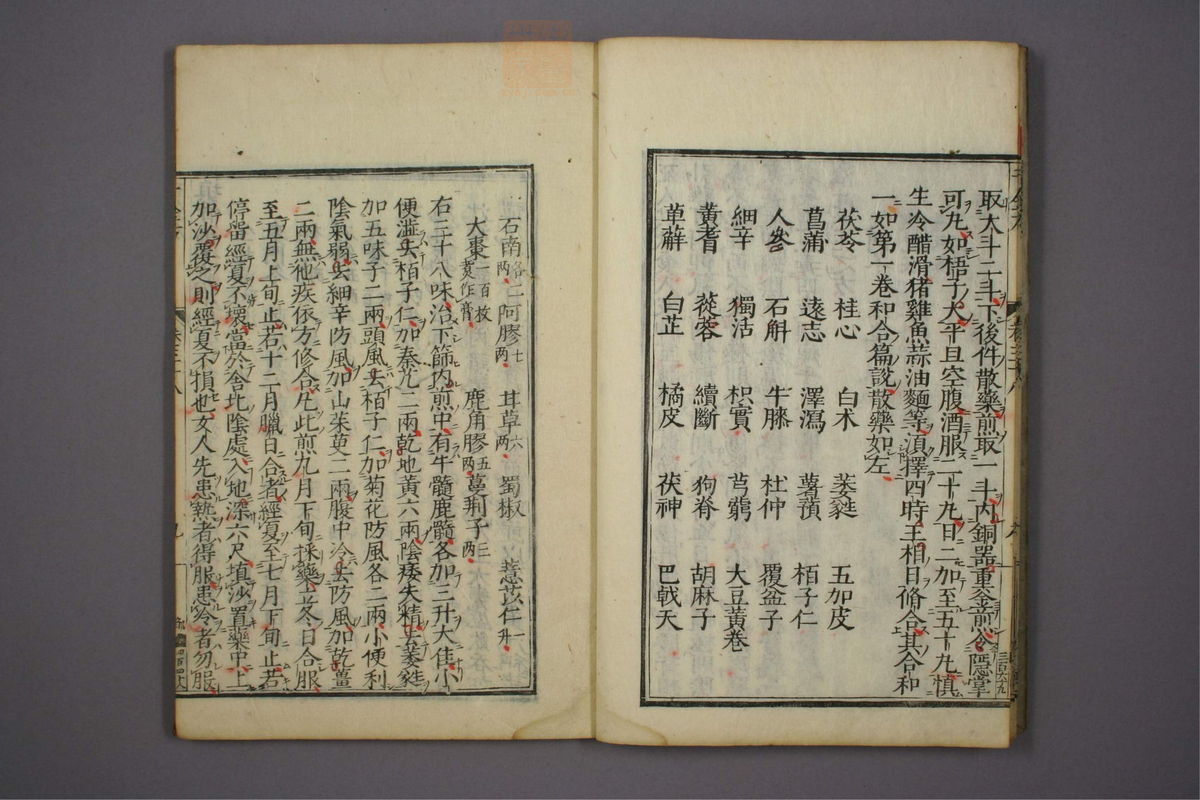 取大斗二斗下後件散藥煎取一斗內銅器重釜煎令隱掌
可丸如梧子大平旦空腹酒服二十丸日二加至五十丸慎
生冷醋滑猪雞魚蒜油麵等須擇四時王相日脩合其合和
一如第一卷和合篇說散藥如左
茯苓 桂心 白朮 萎蕤 五加皮
菖蒲 遠志 澤瀉 薯蕷 栢子仁
人參 石斛 牛膝 杜仲 覆盆子
細辛 獨活 枳實 芎藭 大豆黃卷
黃耆 蓯蓉 續斷 狗脊 胡麻子
萆薢 白芷 橘皮 茯神 巴戟天
石南各二两 阿膠七两 茸草六两 蜀椒 薏苡仁一升
大棗一百枚煮作膏 鹿角膠五两 蔓荆子三两
右三十八味治下篩內煎中有牛髓鹿髓各加三升大佳小
便澁去栢子仁加秦艽二兩乾地黃六兩陰痿失精去萎蕤
加五味子二兩頭風去栢子仁加菊花防風各二兩小便利
陰氣弱去細辛防風加山茱萸二兩腹中冷去防風加乾薑
二兩無他疾依方修合凡此煎九月下旬採藥立冬日合服
至五月上旬止若十二月臘日合者經夏至七月下旬止若
停留經夏不壞當於舍北陰處入地深六尺填沙置藥中上
加沙覆之則經夏不損也女人先患熱者得服患冷者勿服